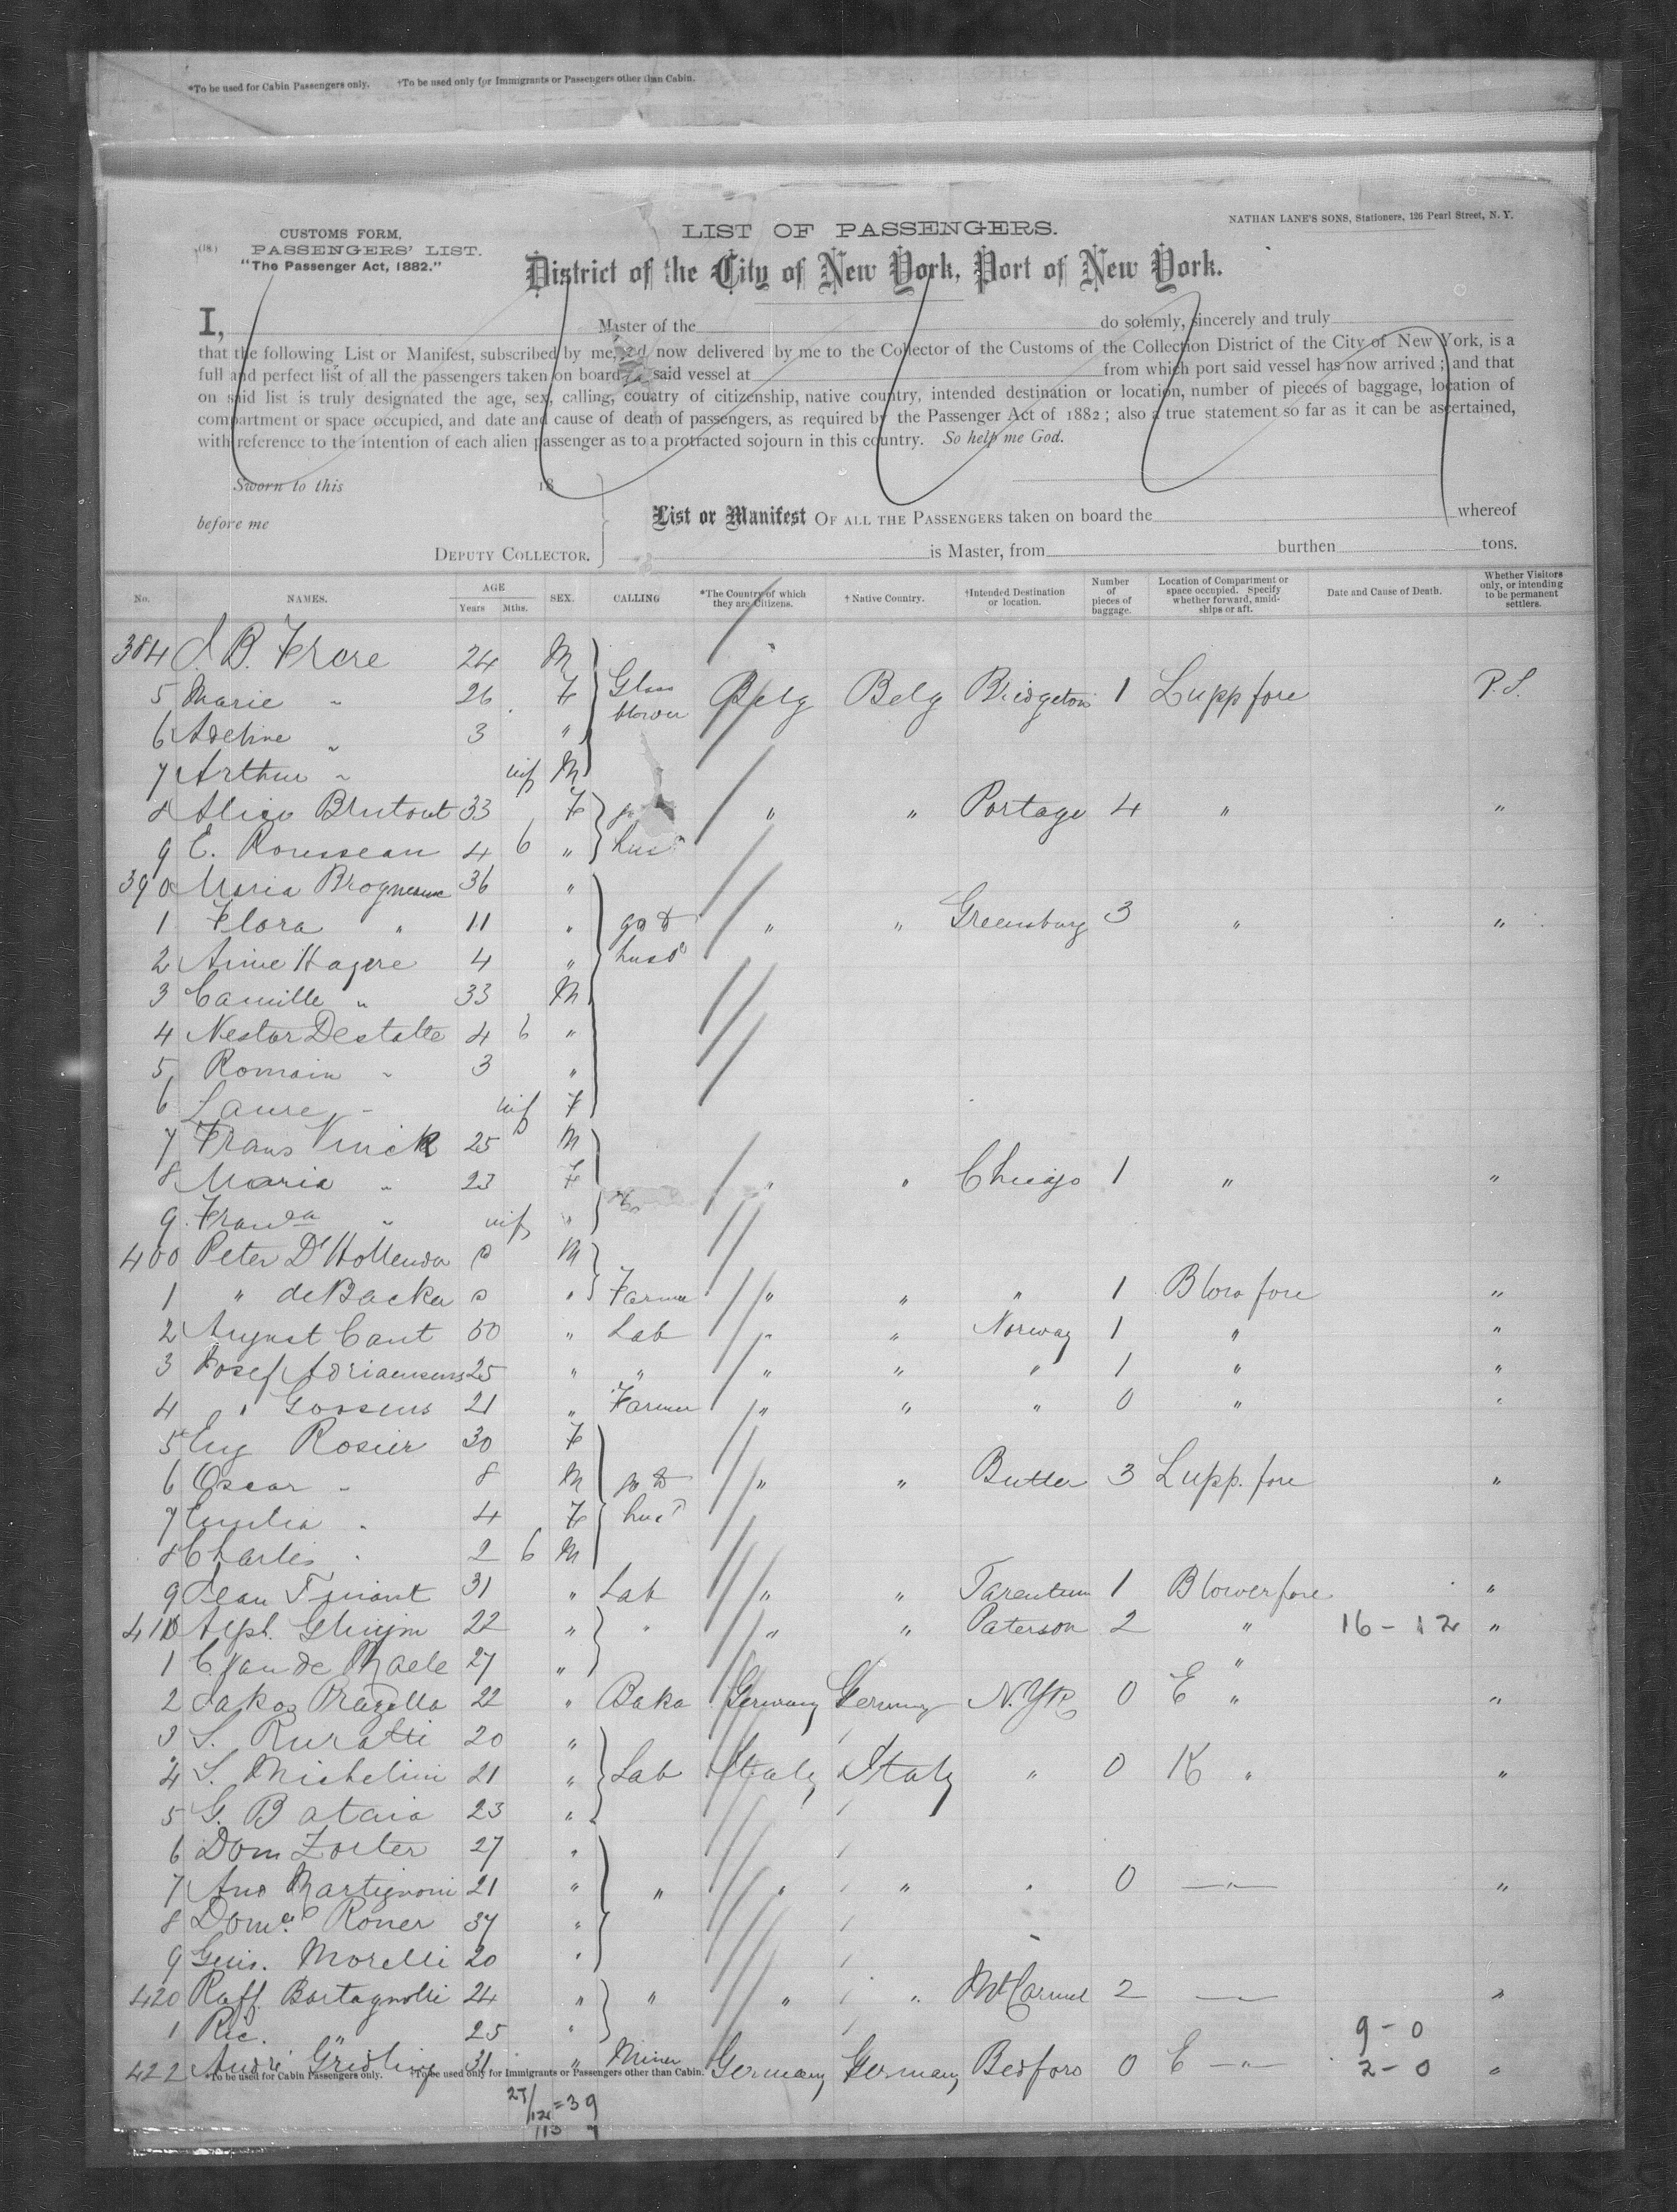 *To be used for Cabin Passengers only. †To be used only for Immigrants or Passengers other than Cabin.
NATHAN LANE'S SONS, Stationers, 126 Pearl Street, N. Y.
(18)
CUSTOMS FORM,
PASSENGERS' LIST.
"The Passenger Act, 1882."
LIST OF PASSENGERS.
District of the City of New York, Port of New York.
I, Master of the do solemly, sincerely and truly
that the following List or Manifest, subscribed by me, and now delivered by me to the Collector of the Customs of the Collection District of the City of New York, is a
full and perfect list of all the passengers taken on board said vessel at from which port said vessel has now arrived; and that
on said list is truly designated the age, sex, calling, country of citizenship, native country, intended destination or location, number of pieces of baggage, location of
compartment or space occupied, and date and cause of death of passengers, as required by the Passenger Act of 1882; also a true statement so far as it can be ascertained,
with reference to the intention of each alien passenger as to a protracted sojourn in this country. So help me God.
Sworn to this 18
before me
DEPUTY COLLECTOR.
List or Manifest OF ALL THE PASSENGERS taken on board the whereof
is Master, from burthen tons.
No. NAMES. AGE Years Mths. SEX. CALLING *The Country of which they are Citizens. †Native Country. †Intended Destination or location. Number of pieces of baggage. Location of Compartment or space occupied. Specify whether forward, amidships or aft. Date and Cause of Death. Whether Visitors only, or intending to be permanent settlers.
384 J. B. Frere 24 M
5 Marie " 26 F Glass blower Belg Belg Bridgeton 1 L upp fore P.S.
6 Adeline " 3 "
7 Arthur " inf M
8 Alice Brutout 33 F " " Portage 4 " "
9 E. Rousseau 4 6 " husd
390 Maria 36 "
1 Flora " 11 " go to " " Greensburg 3 " "
2 Aimé Hagere 4 " husd
3 Camille " 33 M
4 Nestor Destatte 4 6 "
5 Romain " 3 "
6 Laure " inf F
7 Frans Vinck 25 M
8 Maria " 23 F " " Chicago 1 " "
9 Franca " inf "
400 Peter D'Hollender M
1 " de Backer " Farmer " " " 1 Blow fore "
2 August Cant 50 " Lab " " Norway 1 " "
3 Josef Adriaensens 25 " " " " " 1 " "
4 " Gossens 21 " Farmer " " " 0 " "
5 Eug Rosier 30 F
6 Oscar " 8 M go to " " Butler 3 L upp. fore "
7 Emilia " 4 F husd
8 Charles " 2 6 M
9 Jean Finant 31 " Lab " " Tarentum 1 Blower fore "
410 Alph. Ghuijm 22 " " " " Paterson 2 " 16 - 12 "
1 C. van de Maele 27 " "
2 Jakob 22 " Baker Germany Germany N.Yk 0 E " "
3 S. Ruratti 20 "
4 S. Michelini 21 " Lab Italy Italy " 0 K " "
5 G. Bataia 23 "
6 Dom Zorter 27 "
7 Ano Martignoni 21 " " " " " 0 " "
8 Domco Roner 37 "
9 Guis. Morelli 20 "
420 Raff. Bortagnolli 24 " " " " Mt Carmel 2 " "
1 Ric. " 25 " 9 - 0
422 André Gridling 31 " Miner Germany Germany Bedford 0 E " 2 - 0 "
*To be used for Cabin Passengers only. †To be used only for Immigrants or Passengers other than Cabin.
27/12 = 39
113